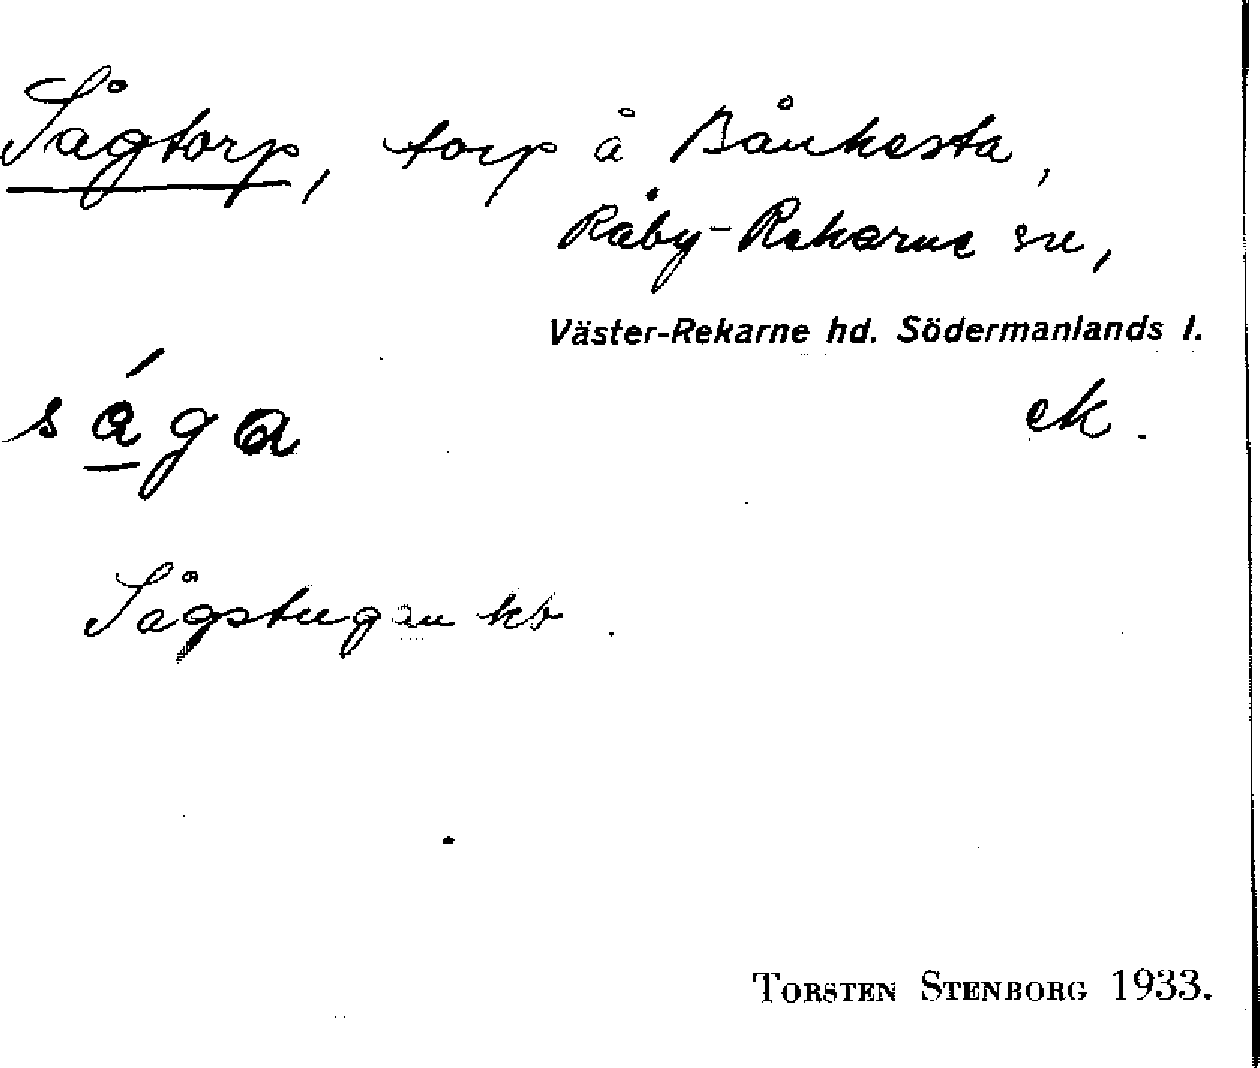 Sågtorp, torp å Bånkesta,
Råby-Rekarne sn,
Väster-Rekarne hd. Södermanlands l.
såga ek.
Sågstugan kb
Torsten Stenborg 1933.